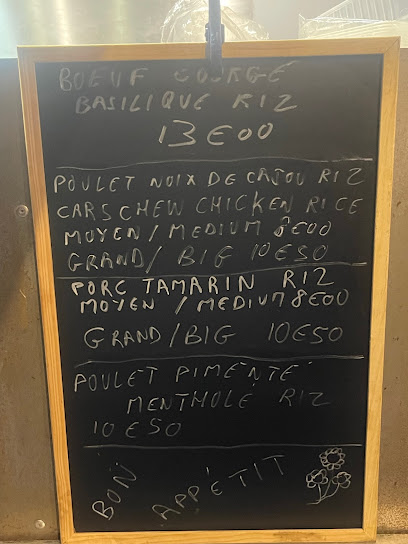 BOEUF COURGE
BASILIQUE RIZ
13€00
POULET NOIX DE CAJOU RIZ
CARSCHEW CHICKEN RICE
MOYEN / MEDIUM 8€00
GRAND / BIG 10€50
PORC TAMARIN RIZ
MOYEN / MEDIUM 8€00
GRAND / BIG 10€50
POULET PIMENTÉ
MENTHOLE RIZ
10€50
BON APPÉTIT